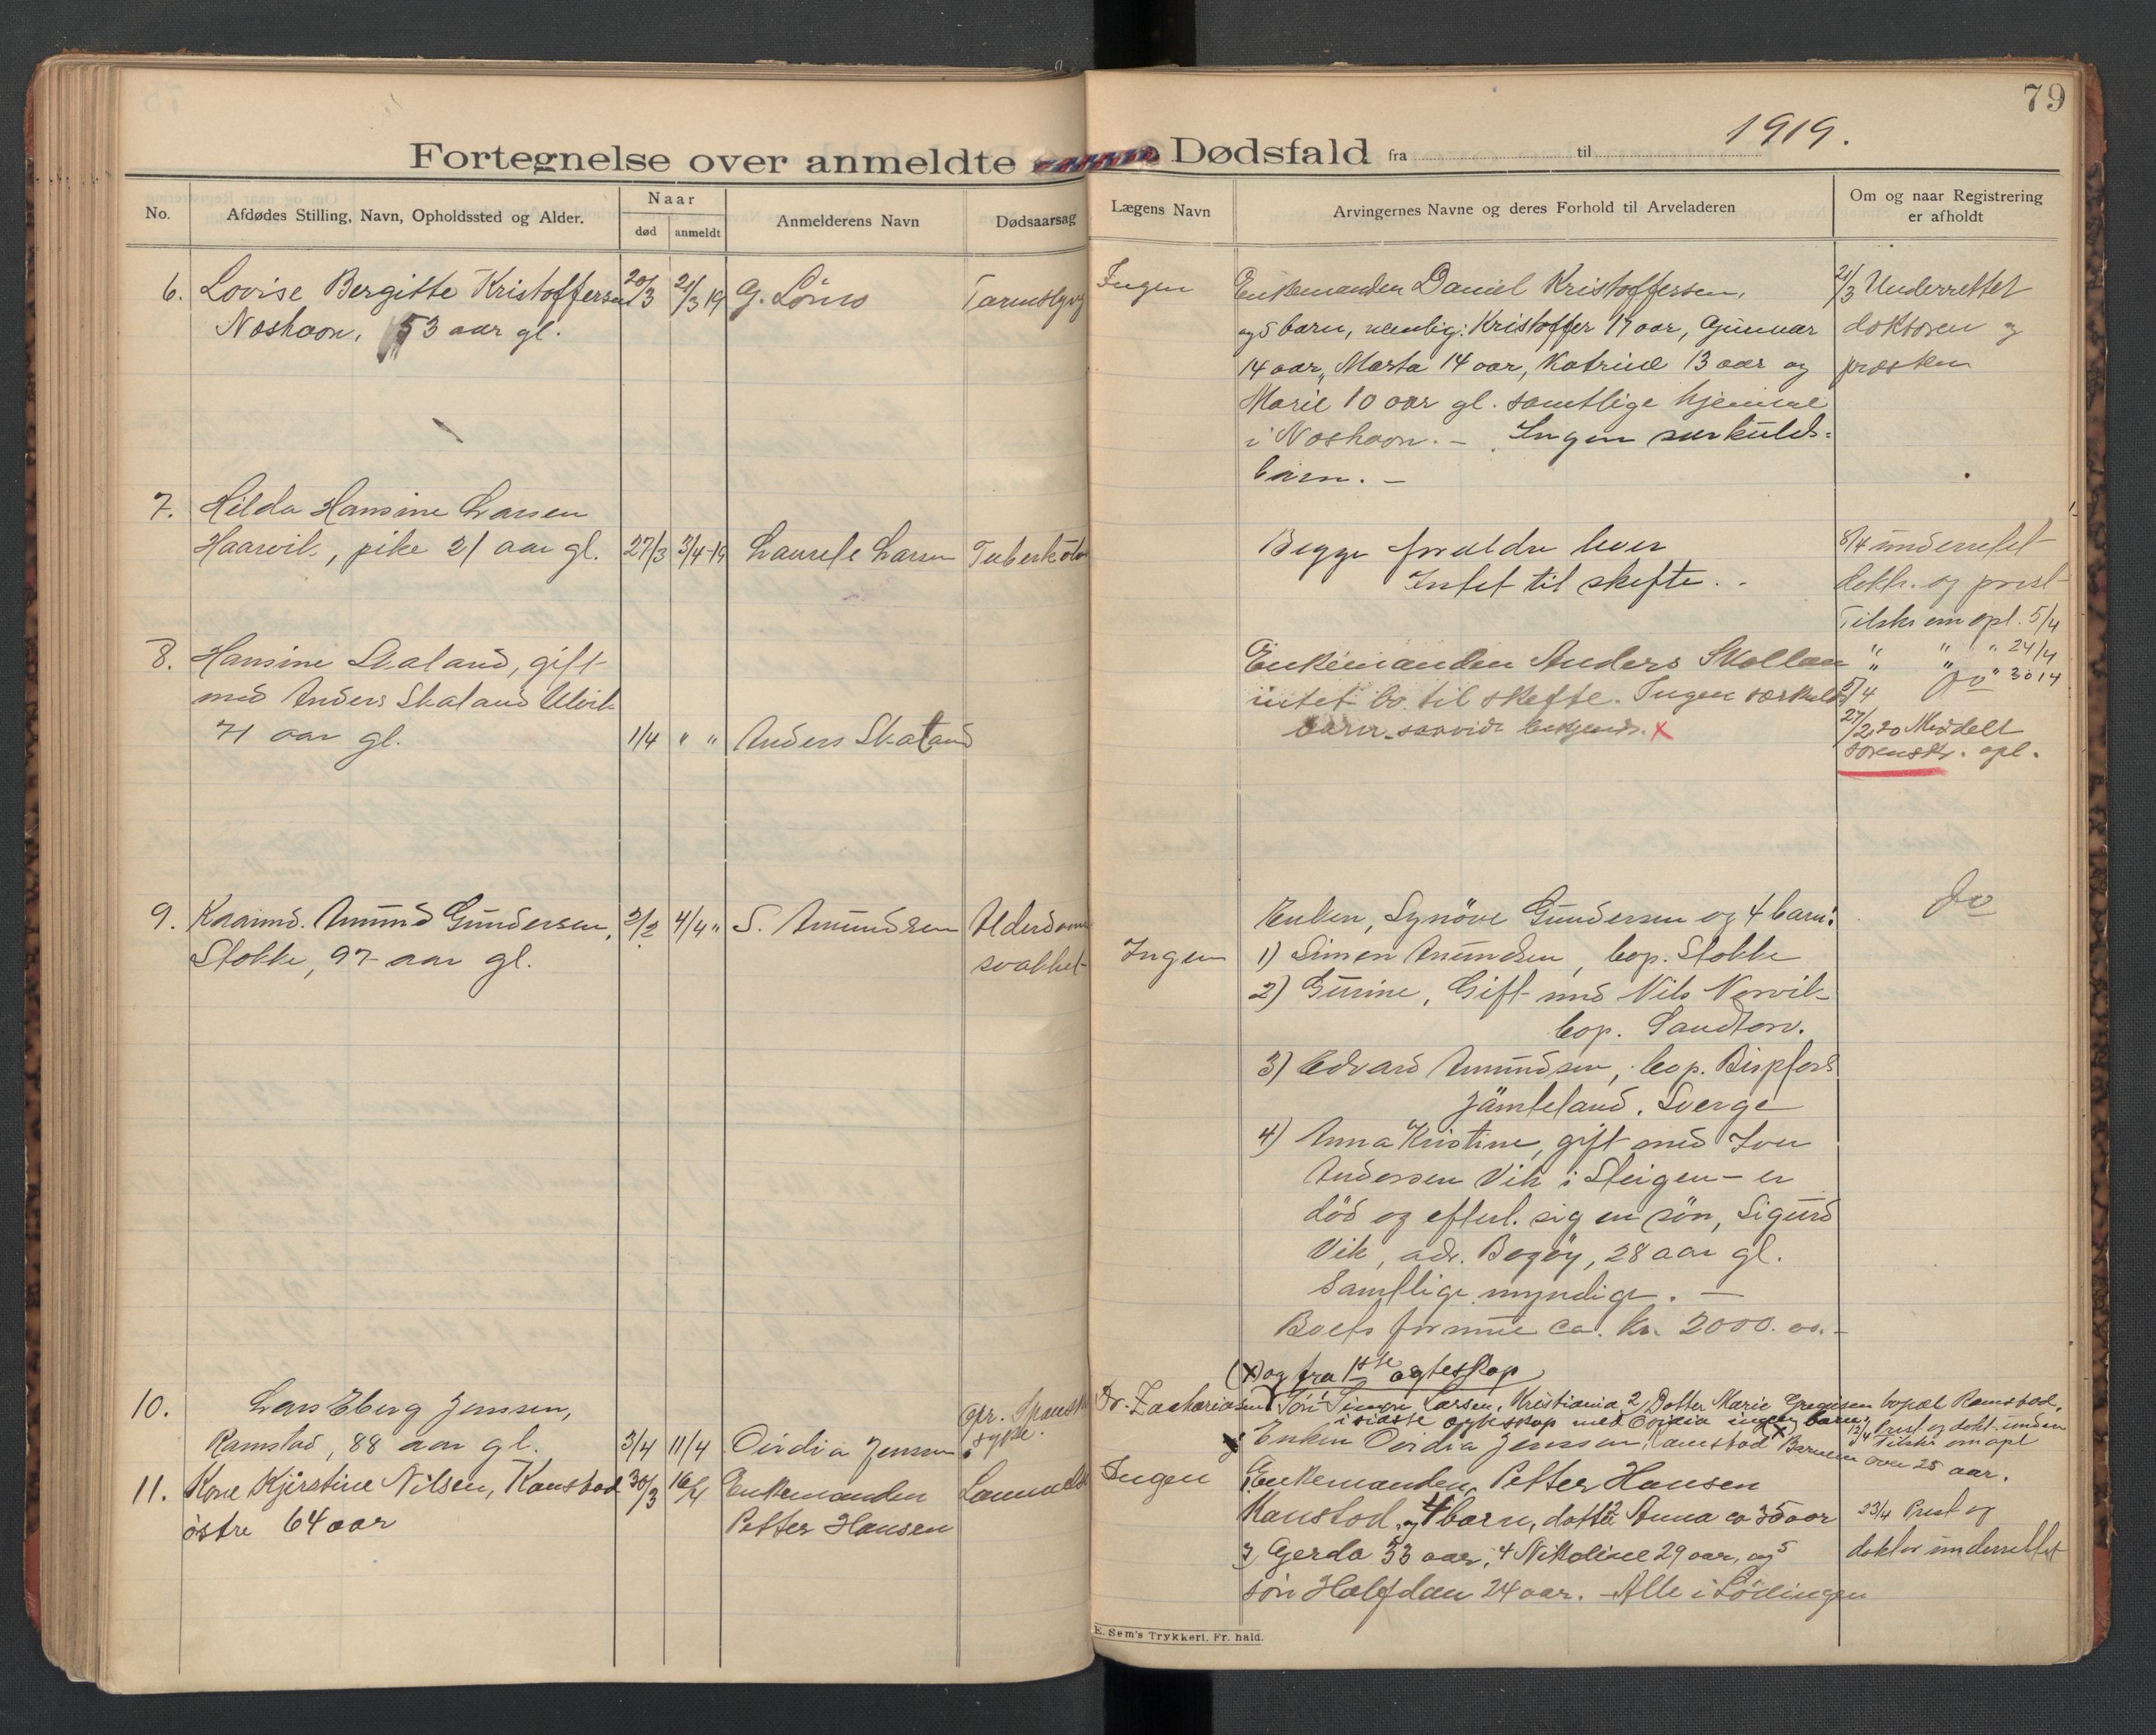 79
1919.
Fortegnelse over anmeldte Dødsfald fra til
No.
Afdødes Stilling, Navn, Opholdssted og Alder.
Naar
død
anmeldt
Anmelderens Navn
Dødsaarsag
Lægens Navn
Arvingernes Navne og deres Forhold til Arveladeren
Om og naar Registrering
er afholdt
6. Lovise Bergitte Kristoffersen 20/3 21/3 19 G. Löns
Noshaon, 53 aar gl.
Ingen
Enkemanden Daniel Kristoffersen,
og 5 barn, nemlig: Kristoffer 17 aar, Gunnar
14 aar, Marta 14 aar, Katrine 13 aar og
Marie 10 aar gl. samtlige hjemme
i Noshaon. - Ingen særkulds-
barn. -
21/3 Underrettet
doktoren og
præsten
7. Hilda Hansine Larsen
Haarvik, pike 21 aar gl. 27/3 3/4-19 Laurets Larsen Tuberkulo
Begge foreldre lever
Intet til skifte. -
8/4 underrettet
doktr. og prest
8. Hansine Skaland, gift
med Anders Skaland Ulvik
71 aar gl. 1/4 " " Anders Skaland
Enkemanden Anders Skollan
intet bo til skefte. Ingen særkulds
barn saavidt bekjendt. x
Tilskr om opl. 5/4
" " " 24/4
" " " 30/4
5/4 Jo
27/2 20 Meddelt
sorenskr. opl.
9. Kaarmd. Amund Gundersen, 2/2 4/4 " S. Amundsen Alderdoms
Stokke, 97 aar gl. svakhet
Ingen
Enken, Synöve Gundersen og 4 barn:
1) Simon Amundsen, bop. Stokke
2) Gurine, Gift med Nils Norvik
bop. Sandtorv.
3) Edvard Amundsen, bop. Bispfors
Jämteland. Sverge
4) Anna Kristine, gift med Iver
Andersen Vik i Steigen - er
död og efterl. sig en sön, Sigurd
Vik, adr. Bogöy, 28 aar gl.
Samtlige myndige. -
Boets formue ca. kr. 2000.00.-
Jo
10. Lars Eberg Jensen,
Ramstad, 88 aar gl. 3/4 11/4 Ovidia Jensen
opr. Spansk
syke.
Dr. Zachariasen
(x) og fra 1ste ægteskap
1 Sön Simon Larsen, Kristiania 2, Dotter Marie Gregusen bopæl Ramstad,
i sidste ægteskap med Ovidia ingen barn,
Enken Ovidia Jensen, Ramstad (x) Barnene over 25 aar.
12/4 Prest og dokt. under
Tilskr om opl
11. Kone Kjirstine Nilsen, Kanstad 30/3 16/4 Enkemanden
östre 64 aar Petter Hansen
Ingen
1 Enkemanden, Petter Hansen
Kanstad, og 4 barn, dotter 2 Anna ca 35 aar
3, Gerda 33 aar, 4 Nikoline 29 aar, og 5
sön Halfdan 24 aar. - Alle i Lödingen
23/4 Prest og
doktor underrettet
E. Sem's Trykkeri, Fr. hald.